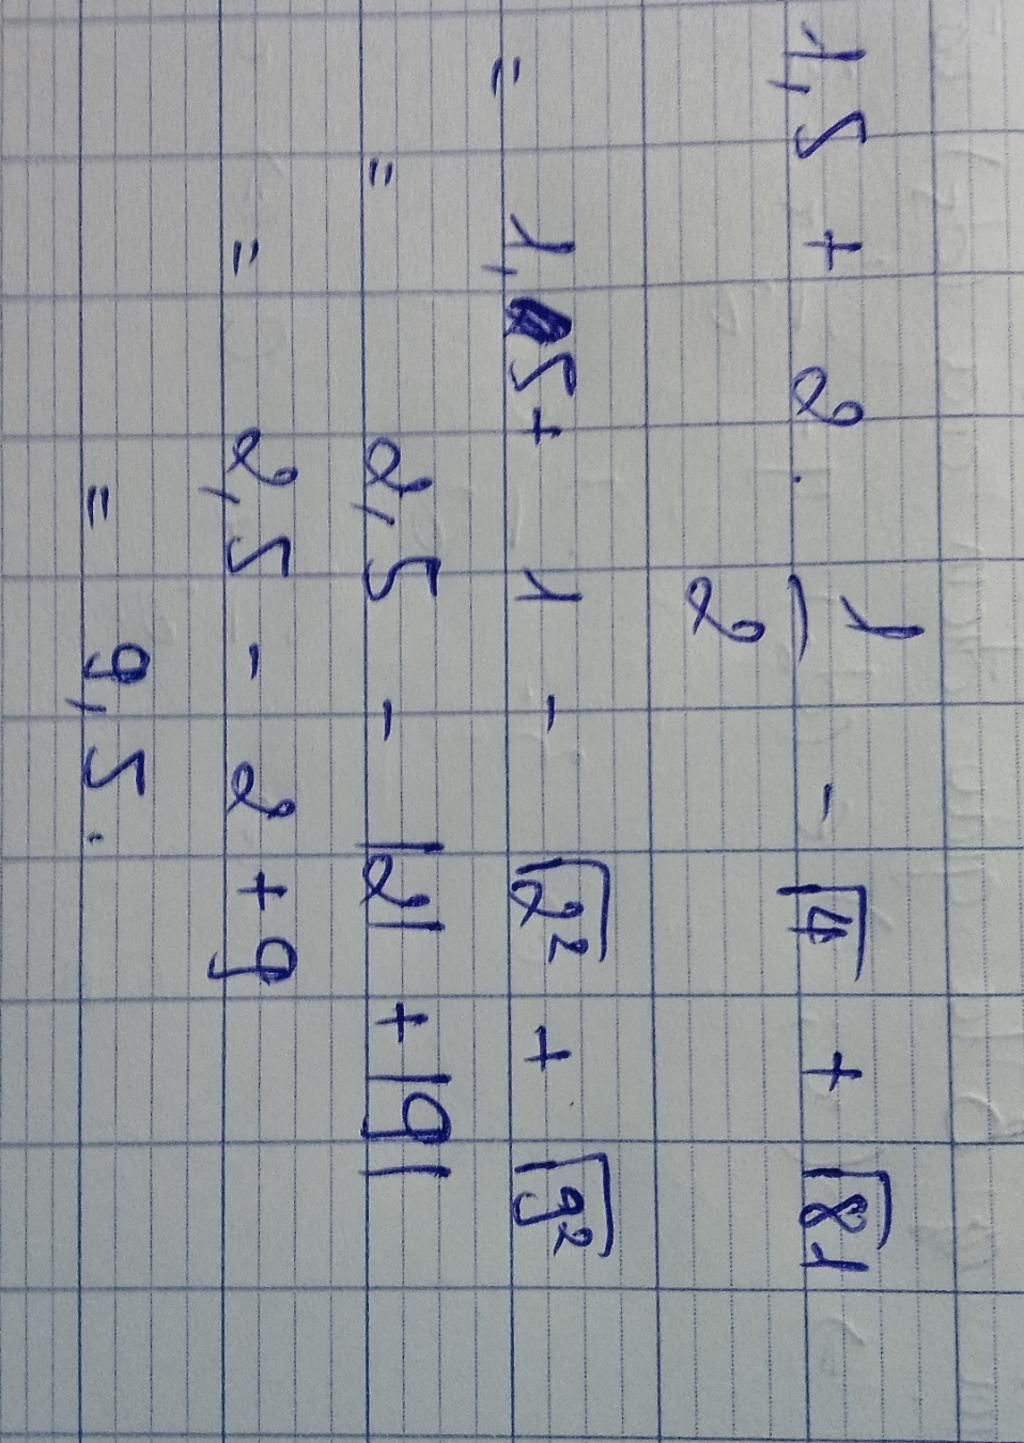 1,5 + 2 . 1/2 - √4 + √81
= 1,5 + 1 - √2² + √9²
= 2,5 - |2| + |9|
= 2,5 - 2 + 9
= 9,5.